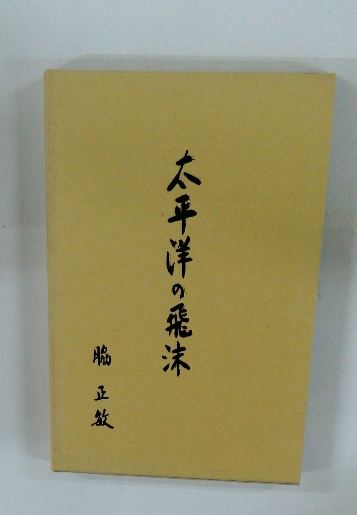 太平洋の飛沫
脇正敏